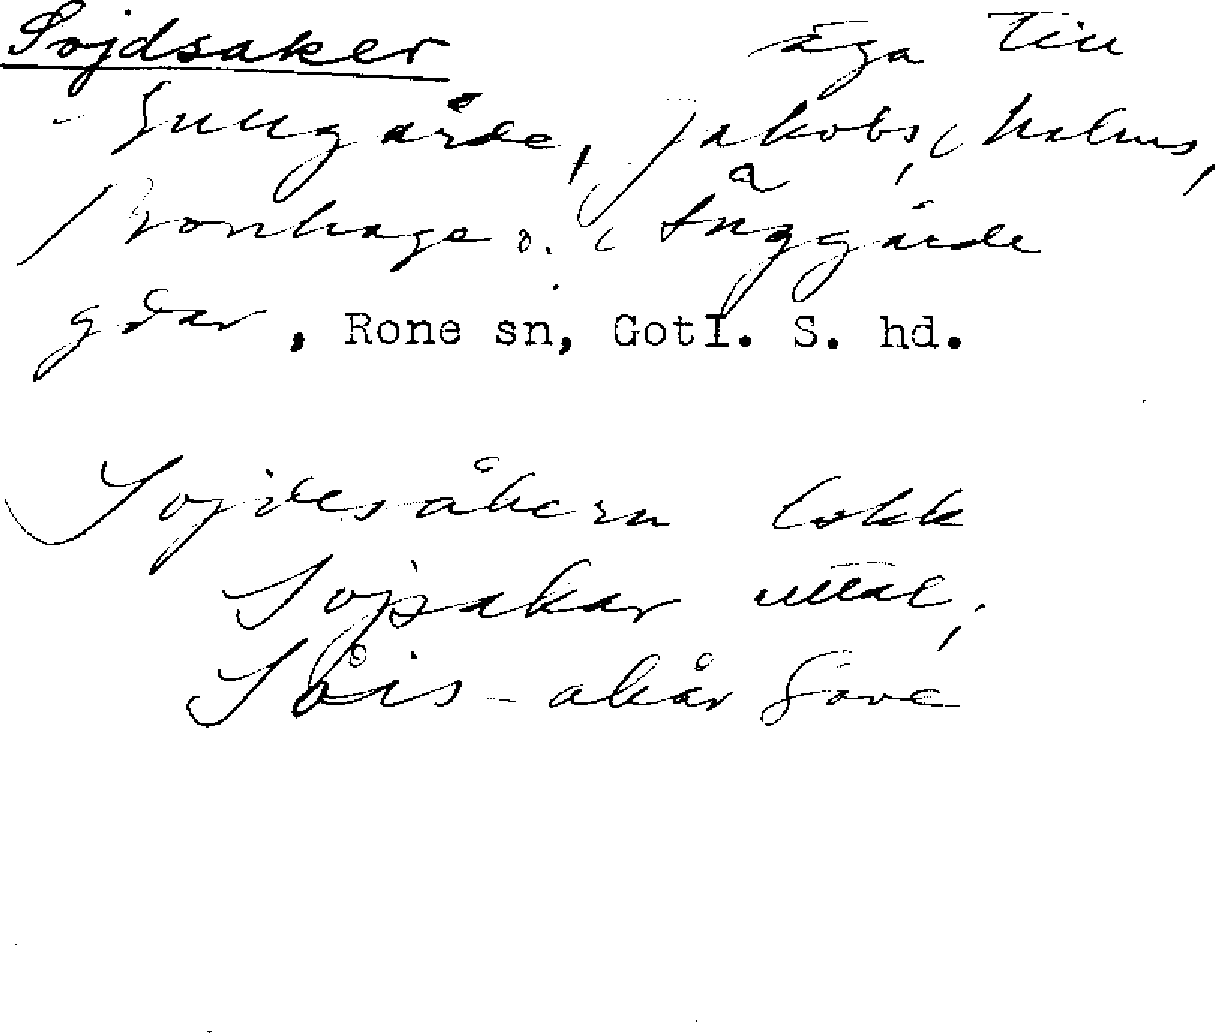 Sojdsaker äga till
Gullgårde, Jakobs, Malms,
Bonhage o. Taggårde
gdar, Rone sn, Gotl. S. hd.
Sojdesåkern lokk
Sojsakar uttal,
Såis-akår Gove